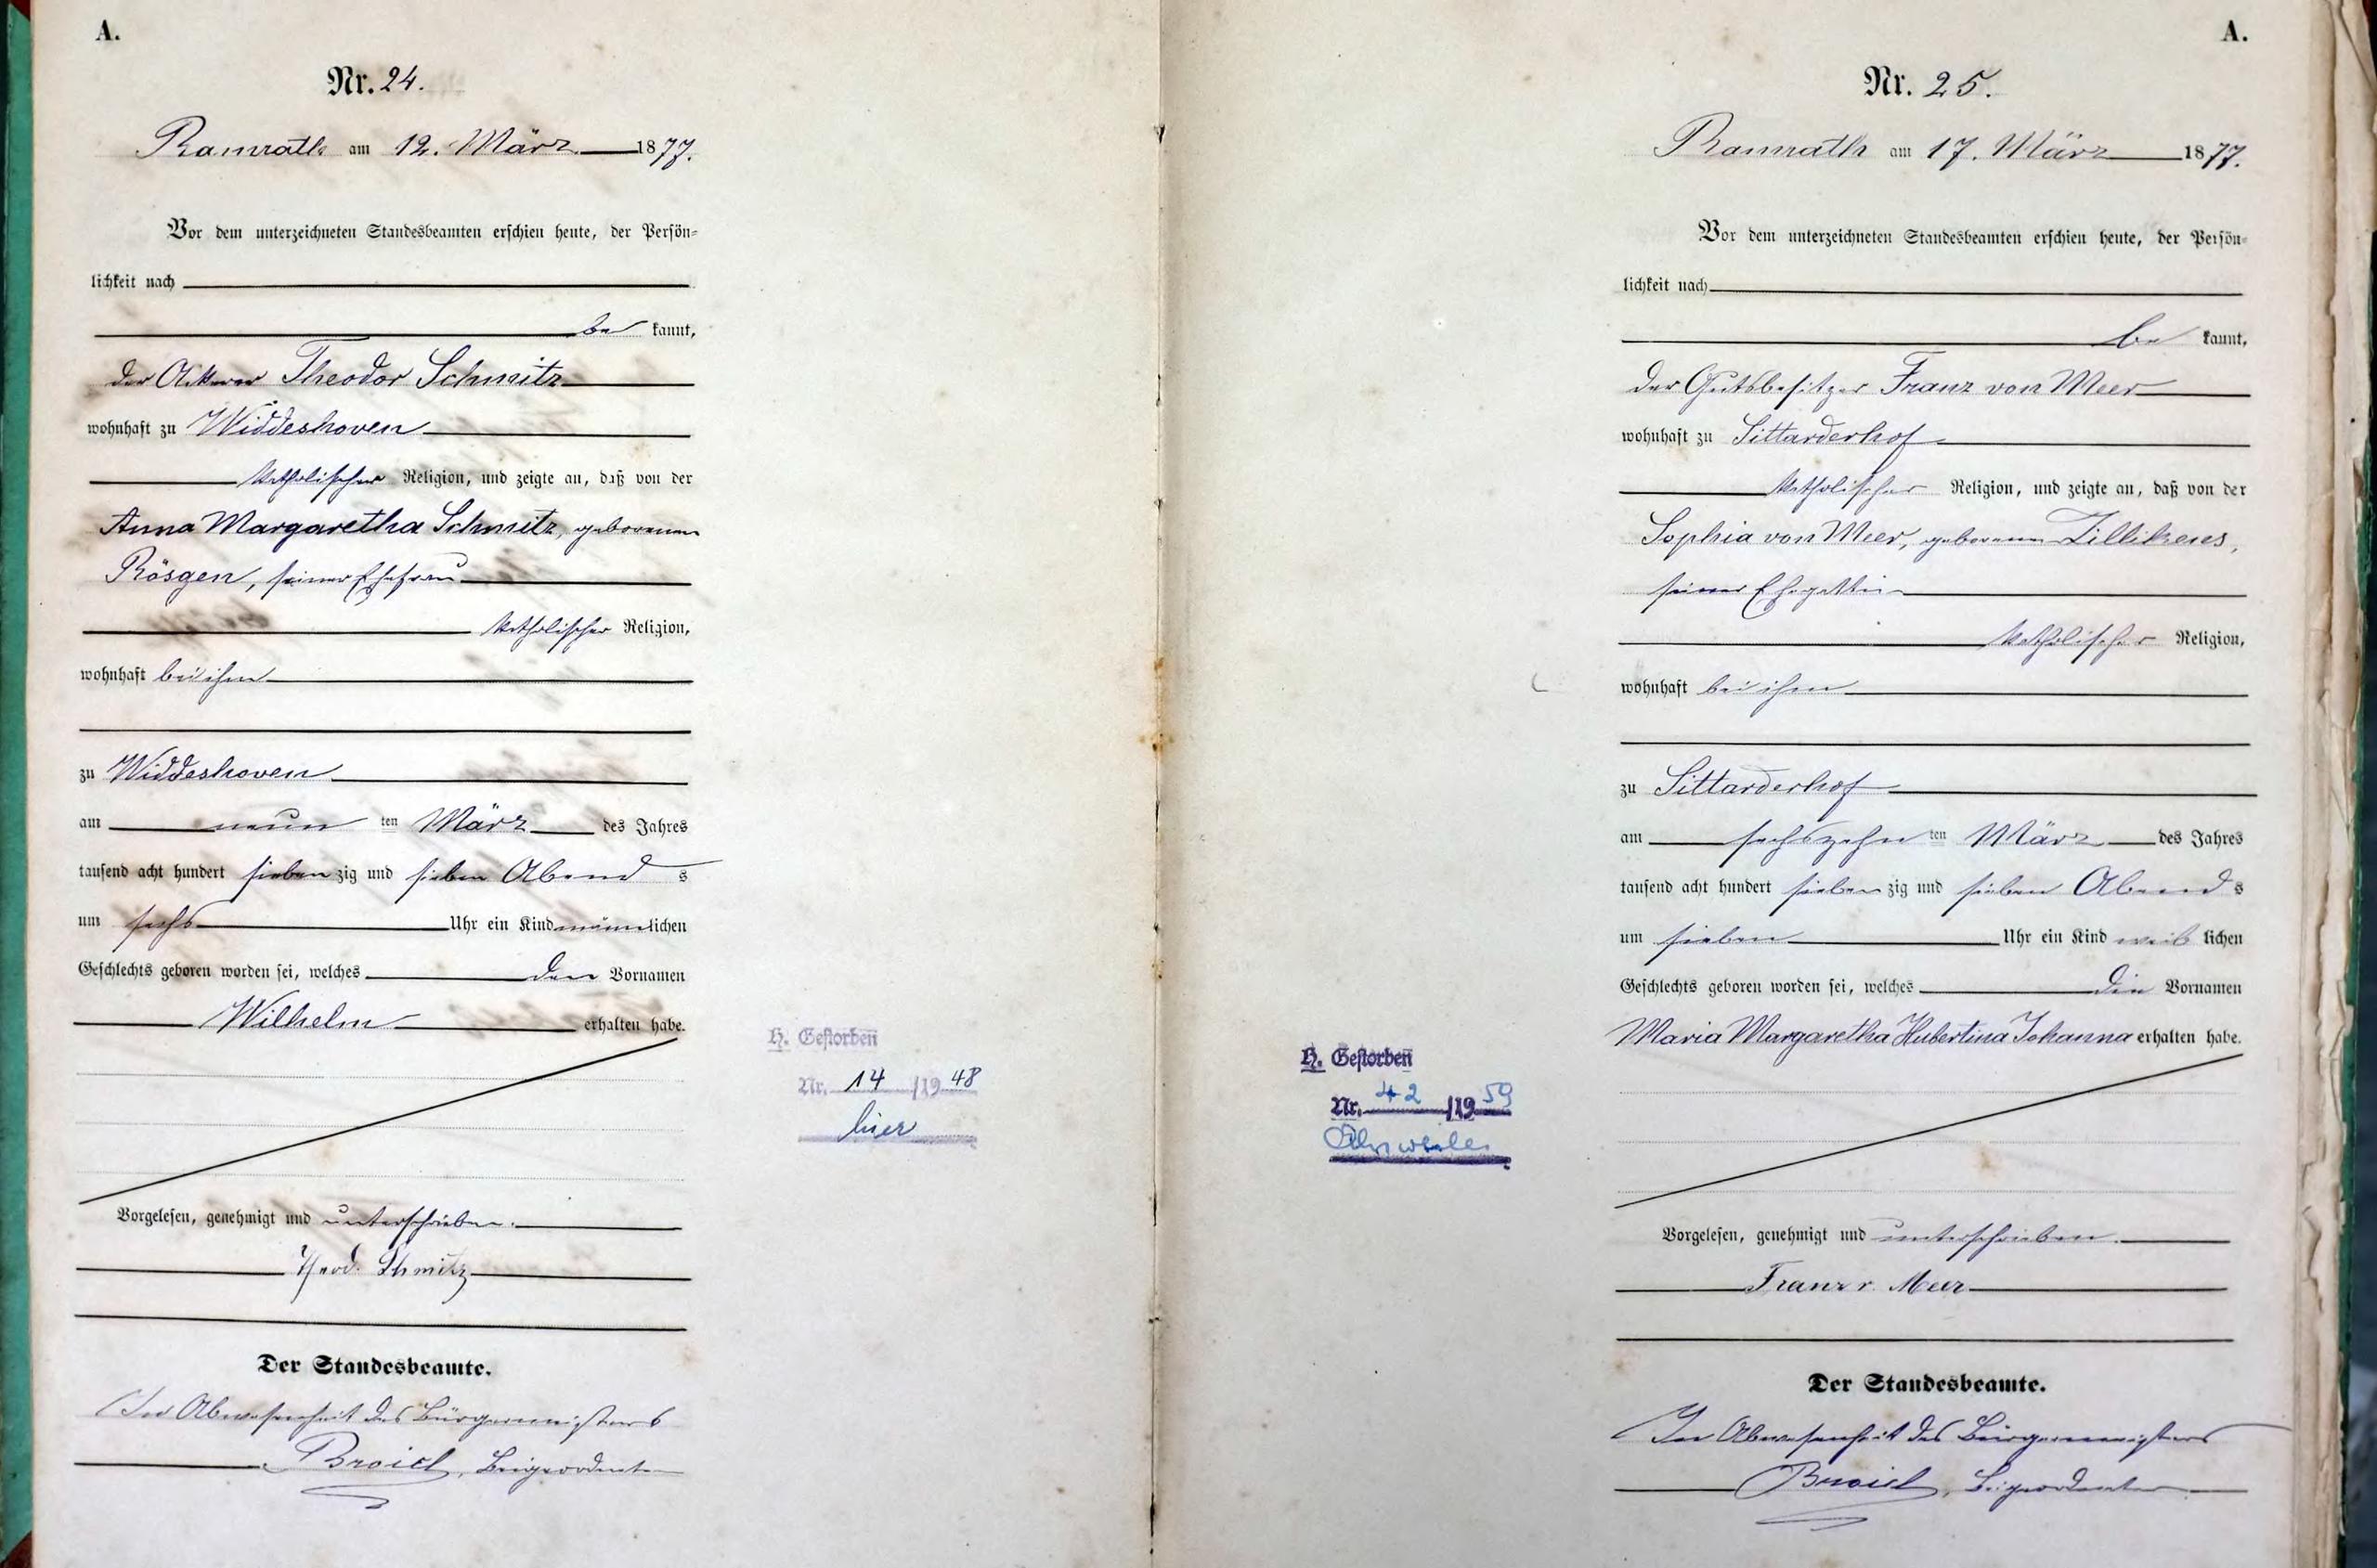 A.
Nr. 24.
Ramrath am 12. März 1877.
Vor dem unterzeichneten Standesbeamten erschien heute, der Persön-
lichkeit nach
be kannt,
der Ackerer Theodor Schmitz
wohnhaft zu Widdeshoven
katholischer Religion, und zeigte an, daß von der
Anna Margaretha Schmitz, geborenen
Rösgen, seiner Ehefrau
katholischer Religion,
wohnhaft bei ihm
zu Widdeshoven
am neun ten März des Jahres
tausend acht hundert sieben zig und sieben Abend s
um sechs Uhr ein Kind männlichen
Geschlechts geboren worden sei, welches den Vornamen
Wilhelm erhalten habe.
H. Gestorben
Nr. 14 /1948
hier
Vorgelesen, genehmigt und unterschrieben.
Theod. Schmitz
Der Standesbeamte.
In Abwesenheit des Bürgermeisters
Broich, Beigeordneter
A.
Nr. 25.
Ramrath am 17. März 1877.
Vor dem unterzeichneten Standesbeamten erschien heute, der Persön-
lichkeit nach
be kannt,
der Gutsbesitzer Franz von Meer
wohnhaft zu Sittarderhof
katholischer Religion, und zeigte an, daß von der
Sophia von Meer, geborenen Zillikens,
seiner Ehegattin
katholischer Religion,
wohnhaft bei ihm
zu Sittarderhof
am sechszehn ten März des Jahres
tausend acht hundert sieben zig und sieben Abend s
um sieben Uhr ein Kind weib lichen
Geschlechts geboren worden sei, welches die Vornamen
Maria Margaretha Hubertina Johanna erhalten habe.
H. Gestorben
Nr. 42 /1959
Ahrweiler
Vorgelesen, genehmigt und unterschrieben.
Franz v. Meer
Der Standesbeamte.
In Abwesenheit des Bürgermeisters
Broich, Beigeordneter